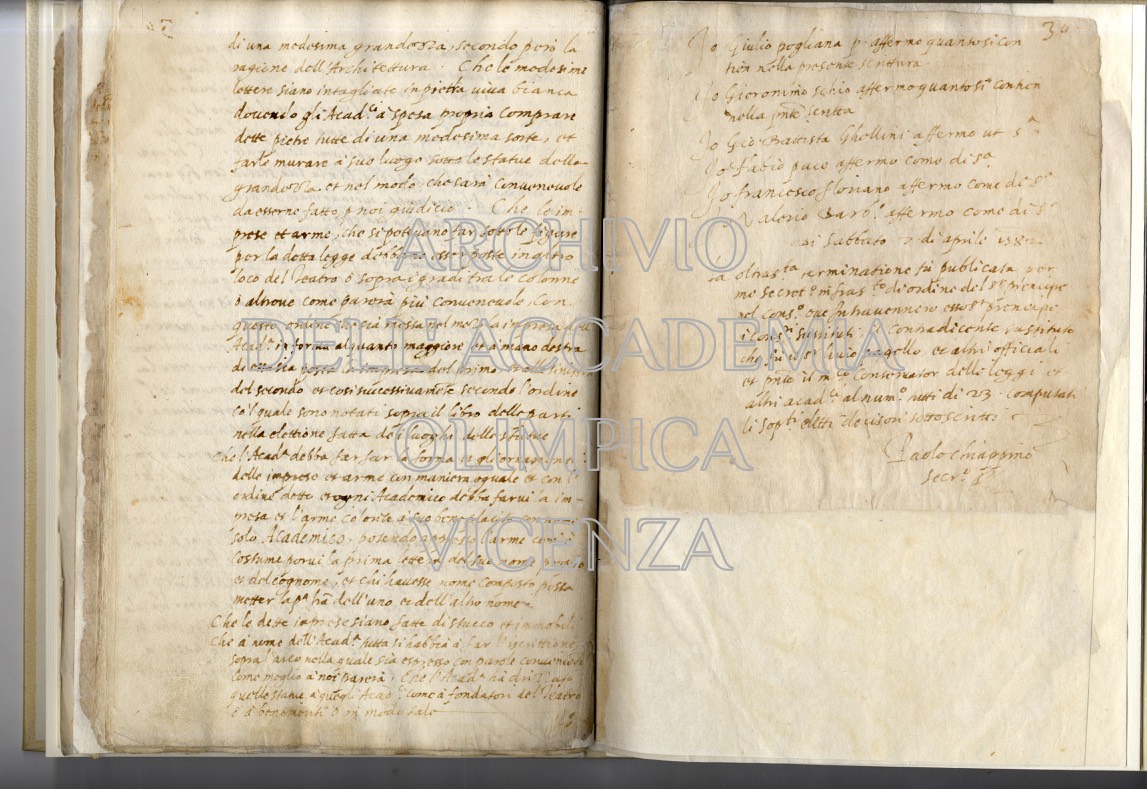 di una medesima grandezza, secondo però la
ragione dell'Architettura. Che le medesime
lettere siano intagliate in pietra viva bianca
dovendo gli Acad.ci à spesa propria comprare
dette pietre tutte di una medesima sorte, et
farle murare à suo luogo sotto le statue della
grandezza et nel modo, che sarà convenevole
da esserne fatto p noi giudicio. Che le im-
prese et arme, che si potevano far sotto le figure
per la detta legge debbano esser poste in altro
loco del Teatro ò sopra i gradi tra le colonne
ò altrove come parerà più convenevole, con
questo ordine che sia messa nel mezo la impresa dell'
Acad.a in forma alquanto maggiore et à mano destra
del primo et alla sinistra
del secondo et così successivamente secondo l'ordine
co'l quale sono notati sopra il libro delle parti
nella elettione fatta de i luoghi delle statue
Che l'Acad.a debba far far la forma et gli ornamenti
delle imprese et arme con maniera eguale et con l'
ordine detto et ogni Academico debba farvi la im-
presa et l'arme colorita à suo beneplacito
solo Academico, potendo appresso l'arme com'è
costume porvi la prima lettera del suo nome proprio
et del cognome, et chi havesse nome composto possa
metter la p.a l'ra dell'uno et dell'altro nome.
Che le dette imprese siano fatte di stucco et immobili
Che à nome dell'Acad.a tutta si habbia à far l'iscrittione
sopra l'arco nella quale sia espresso con parole convenienti
come meglio à noi parerà, Che l'Acad.a hà drizzato
quelle statue à quegli Acad.ci come à fondatori del Teatro
ò à benemeriti ò in modo tale
3
Io Giulio pogliana p. affermo quanto si con
tien nella presente scrittura
Io Gieronimo schio affermo quanto si contien
nella pnte scritta
Io Gio: Battista Ghellini affermo ut s.a
Io Fabio pace affermo come di s.a
Io francesco floriano affermo come di s.a
Valerio Barb.o affermo come di s.a
Sabbato 7 di aprile 1582
oltras.ta terminatione fù publicata per
me secret.o infras.to di ordine del s.r principe
nel cons.o ove intravennero esso s.r principe
i cons.ri sustituti. Contradicente sustituto
che fù il s.r livio pagello, et altri officiali
et pnte il m.co Conservator delle leggi et
altri acad.ci al num.o tutti di 23 computati
li sop.ti eletti decisori sottoscritti.
Paolo Chiappino
secr.o ss
ARCHIVIO
DELL'ACCADEMIA
OLIMPICA
VICENZA